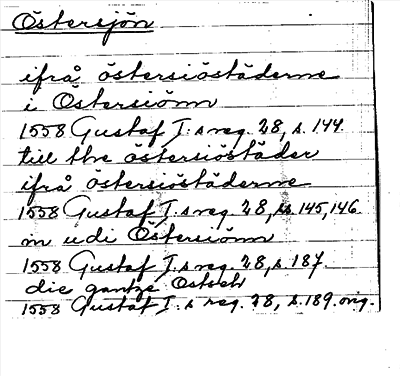 Östersjön
ifrå östersiöstäderne
i Östersiönn
1558 Gustaf I:s reg. 28, s. 144.
till the östersiöstäder
ifrå östersiöstäderne
1558 Gustaf I:s reg. 28, ss. 145, 146.
nn udi Östersiönn
1558 Gustaf I:s reg. 28, s. 187.
die gantze Ostseh
1558 Gustaf I:s reg. 28, s. 189. orig.